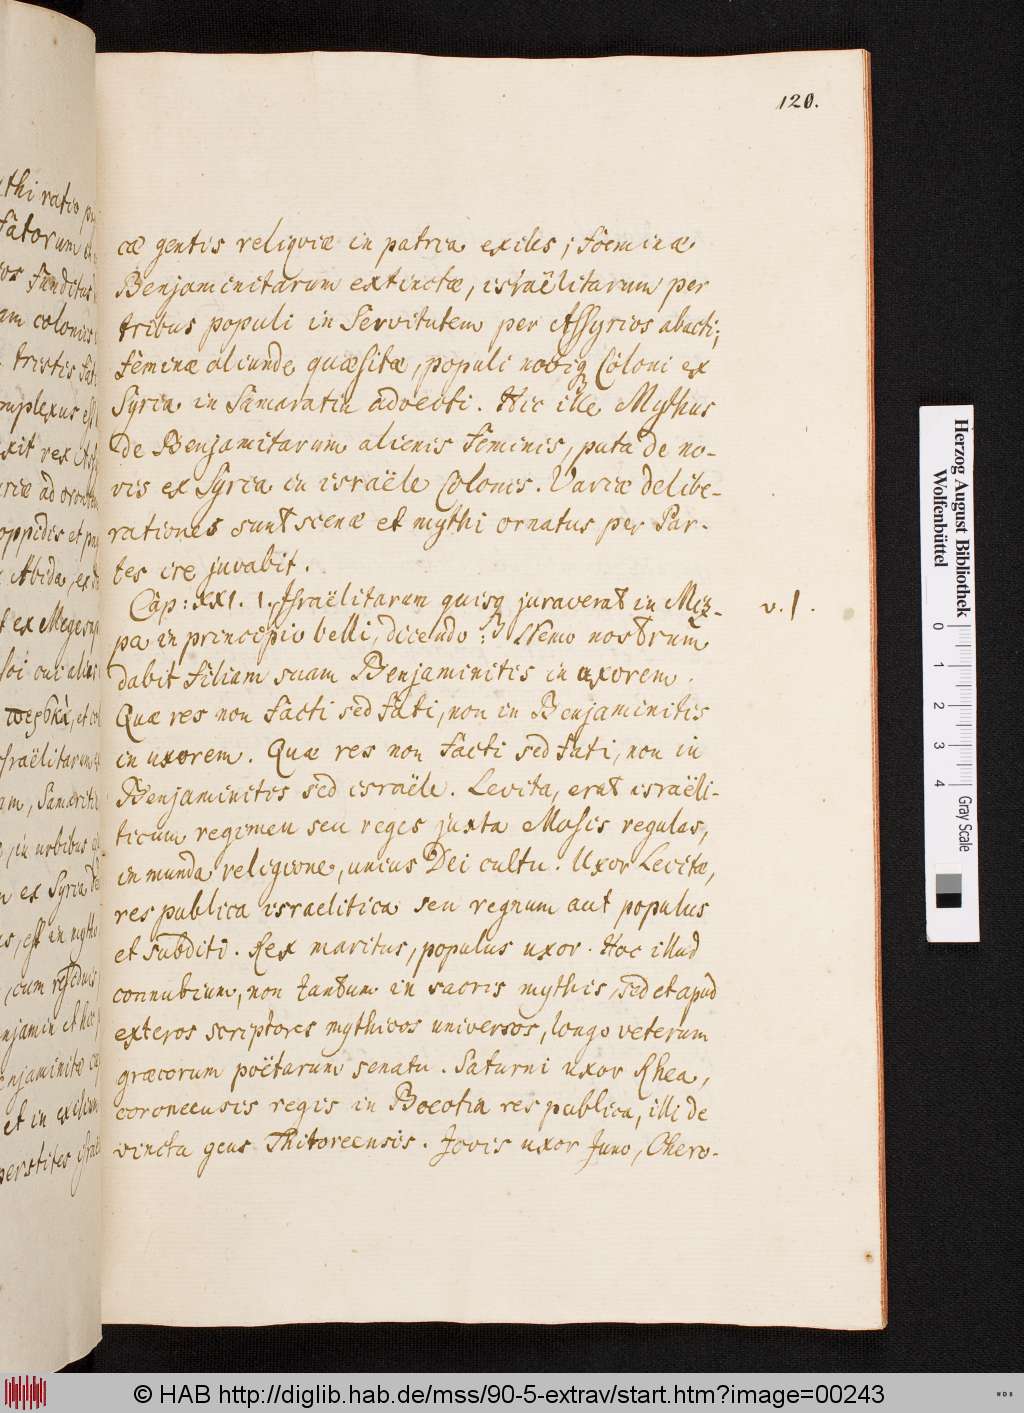 120.
cæ gentis reliqviæ in patria exiles; foeminæ
Benjaminitarum extinctæ, israëlitarum per
tribus populi in Servitutem per Assyrios abacti;
feminæ aliunde quæsitæ, populi novique Coloni ex
Syria in Samaratin advecti. Hic ille Mythus
de Benjamitarum alienis feminis, puta de no-
vis ex Syria in israële Colonis. Variæ delibe-
rationes sunt scenæ et mythi ornatus per Par-
tes ire juvabit.
Cap: XXI. 1. Israëlitarum quisq juraverat in Miz-
v. 1.
pa in principio belli, dicendo: Nemo nostrum
dabit Filiam suam Benjaminitis in uxorem.
Quæ res non facti sed fati, non in Benjaminitis
in uxorem. Quæ res non facti sed fati, non in
Benjaminitis sed israële. Levita, erat israëli-
ticum regimen seu reges juxta Mosis regulas,
in munda religione, unius Dei cultu. Uxor Levitæ,
res publica israelitica seu regnum aut populus
et subditi. Rex maritus, populus uxor. Hoc illud
connubium, non tantum in sacris mythis, sed et apud
exteros scriptores mythicos universos, longo veterum
græcorum poëtarum senatu. Saturni uxor Rhea,
coroneensis regis in Boeotia res publica, illi de
vincta gens Thitoreensis. Jovis uxor Juno, Chero-
thi ratio
fatorum
funditus
am colonies
tristis
mplexus
xit rex
oppidis et
Abida, ex
ex Megesyr
israëlitarum
am, Samariti
, in urbibus
ex Syria
us, est in mytho
, cum
njamin et hæc
enjaminitæ
et in exilium
perstites
Herzog August Bibliothek
Wolfenbüttel
0 1 2 3 4
Gray Scale
© HAB http://diglib.hab.de/mss/90-5-extrav/start.htm?image=00243
WDB